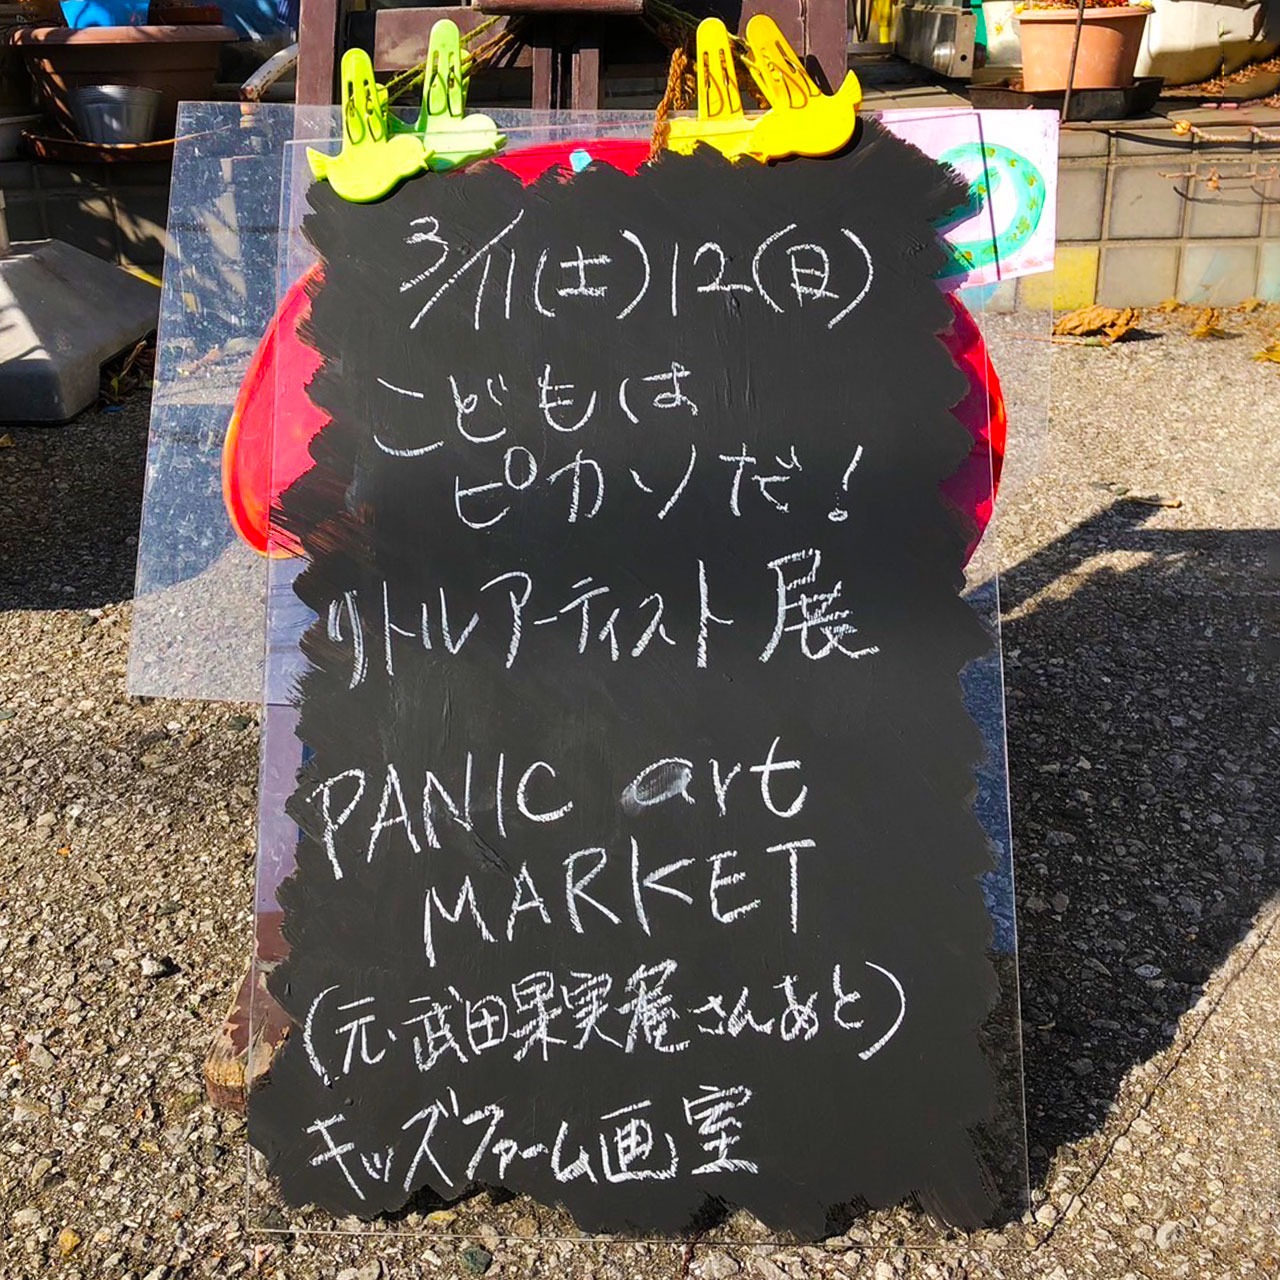 3/11(土)12(日)
こどもは
ピカソだ!
リトルアーティスト展
PANIC art
MARKET
(元・武田果実庵さんあと)
キッズファーム画室